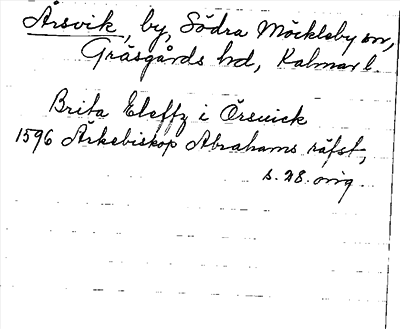 Årsvik, by, Södra Möckleby sn,
Gräsgårds hd, Kalmar l.
Brita Eleffz i Örsuick
1596 Ärkebiskop Abrahams räfst,
s. 28. orig.